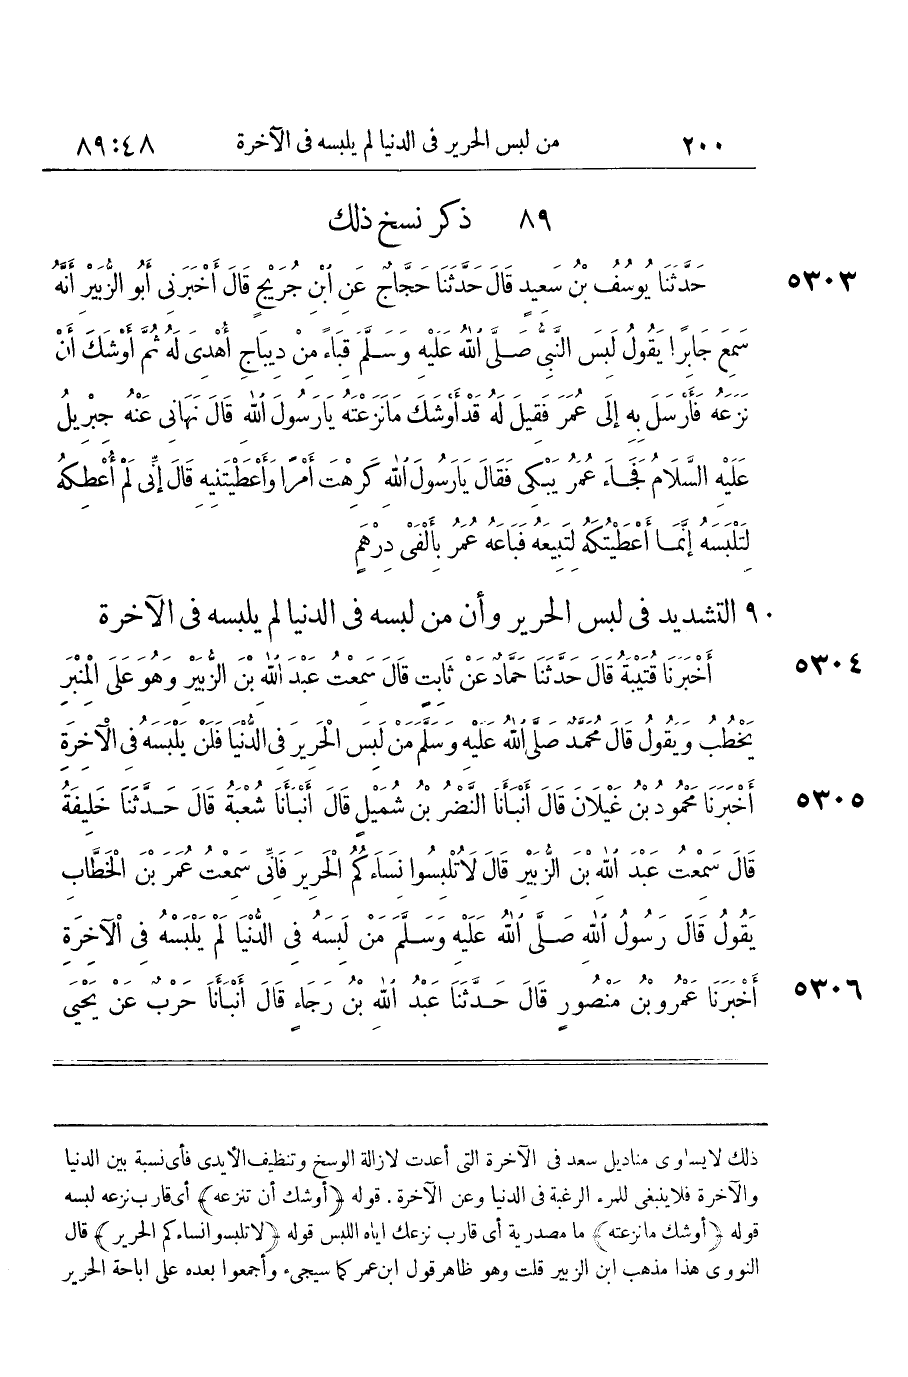 ٢٠٠ من لبس الحرير فى الدنيا لم يلبسه فى الآخرة ٤٨:٨٩
٨٩ ذكر نسخ ذلك
٥٣٠٣ حَدَّثَنَا يُوسُفُ بْنُ سَعِيدٍ قَالَ حَدَّثَنَا حَجَّاجٌ عَنِ ابْنِ جُرَيْجٍ قَالَ أَخْبَرَنِى أَبُو الزُّبَيْرِ أَنَّهُ
سَمِعَ جَابِرًا يَقُولُ لَبِسَ النَّبِىُّ صَلَّى اللهُ عَلَيْهِ وَسَلَّمَ قَبَاءً مِنْ دِيبَاجٍ أُهْدِىَ لَهُ ثُمَّ أَوْشَكَ أَنْ
نَزَعَهُ فَأَرْسَلَ بِهِ إِلَى عُمَرَ فَقِيلَ لَهُ قَدْ أَوْشَكَ مَا نَزَعْتَهُ يَا رَسُولَ اللهِ قَالَ نَهَانِى عَنْهُ جِبْرِيلُ
عَلَيْهِ السَّلَامُ فَجَاءَ عُمَرُ يَبْكِى فَقَالَ يَا رَسُولَ اللهِ كَرِهْتَ أَمْرًا وَأَعْطَيْتَنِيهِ قَالَ إِنِّى لَمْ أُعْطِكَهُ
لِتَلْبَسَهُ إِنَّمَا أَعْطَيْتُكَهُ لِتَبِيعَهُ فَبَاعَهُ عُمَرُ بِأَلْفَىْ دِرْهَمٍ
٩٠ التشديد فى لبس الحرير وأن من لبسه فى الدنيا لم يلبسه فى الآخرة
٥٣٠٤ أَخْبَرَنَا قُتَيْبَةُ قَالَ حَدَّثَنَا حَمَّادٌ عَنْ ثَابِتٍ قَالَ سَمِعْتُ عَبْدَ اللهِ بْنَ الزُّبَيْرِ وَهُوَ عَلَى الْمِنْبَرِ
يَخْطُبُ وَيَقُولُ قَالَ مُحَمَّدٌ صَلَّى اللهُ عَلَيْهِ وَسَلَّمَ مَنْ لَبِسَ الْحَرِيرَ فِى الدُّنْيَا فَلَنْ يَلْبَسَهُ فِى الْآخِرَةِ
٥٣٠٥ أَخْبَرَنَا مَحْمُودُ بْنُ غَيْلَانَ قَالَ أَنْبَأَنَا النَّضْرُ بْنُ شُمَيْلٍ قَالَ أَنْبَأَنَا شُعْبَةُ قَالَ حَدَّثَنَا خَلِيفَةُ
قَالَ سَمِعْتُ عَبْدَ اللهِ بْنَ الزُّبَيْرِ قَالَ لَا تُلْبِسُوا نِسَاءَكُمُ الْحَرِيرَ فَإِنِّى سَمِعْتُ عُمَرَ بْنَ الْخَطَّابِ
يَقُولُ قَالَ رَسُولُ اللهِ صَلَّى اللهُ عَلَيْهِ وَسَلَّمَ مَنْ لَبِسَهُ فِى الدُّنْيَا لَمْ يَلْبَسْهُ فِى الْآخِرَةِ
٥٣٠٦ أَخْبَرَنَا عَمْرُو بْنُ مَنْصُورٍ قَالَ حَدَّثَنَا عَبْدُ اللهِ بْنُ رَجَاءٍ قَالَ أَنْبَأَنَا حَرْبٌ عَنْ يَحْيَى
ذلك لايساوى مناديل سعد فى الآخرة التى أعدت لازالة الوسخ وتنظيف الأيدى فأى نسبة بين الدنيا
والآخرة فلاينبغى للمرء الرغبة فى الدنيا وعن الآخرة. قوله ﴿أوشك أن تنزعه﴾ أى قارب نزعه لبسه
قوله ﴿أوشك مانزعته﴾ ما مصدرية أى قارب نزعك اياه اللبس قوله ﴿لاتلبسوا نساءكم الحرير﴾ قال
النووى هذا مذهب ابن الزبير قلت وهو ظاهر قول ابن عمر كما سيجىء وأجمعوا بعده على اباحة الحرير